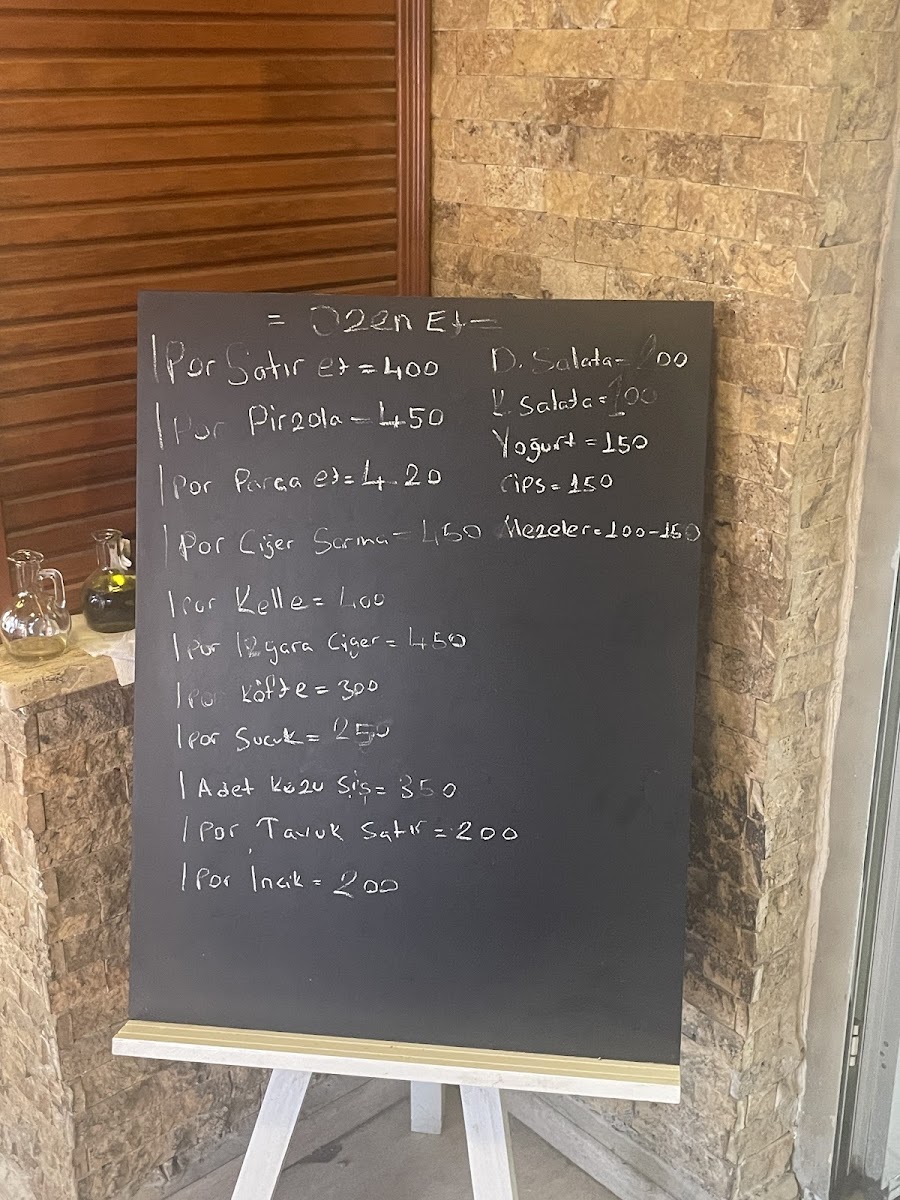 = Özen Et =
1 Por Satır et = 400
1 Por Pirzola = 450
1 Por Parça et = 420
1 Por Ciğer Sarma = 450
1 Por Kelle = 400
1 Por Izgara Ciğer = 450
1 Por Köfte = 300
1 Por Sucuk = 250
1 Adet Kuzu Şiş = 350
1 Por Tavuk Satır = 200
1 Por İncik = 200
D. Salata = 200
K. Salata = 100
Yoğurt = 150
Cips = 150
Mezeler = 100-150